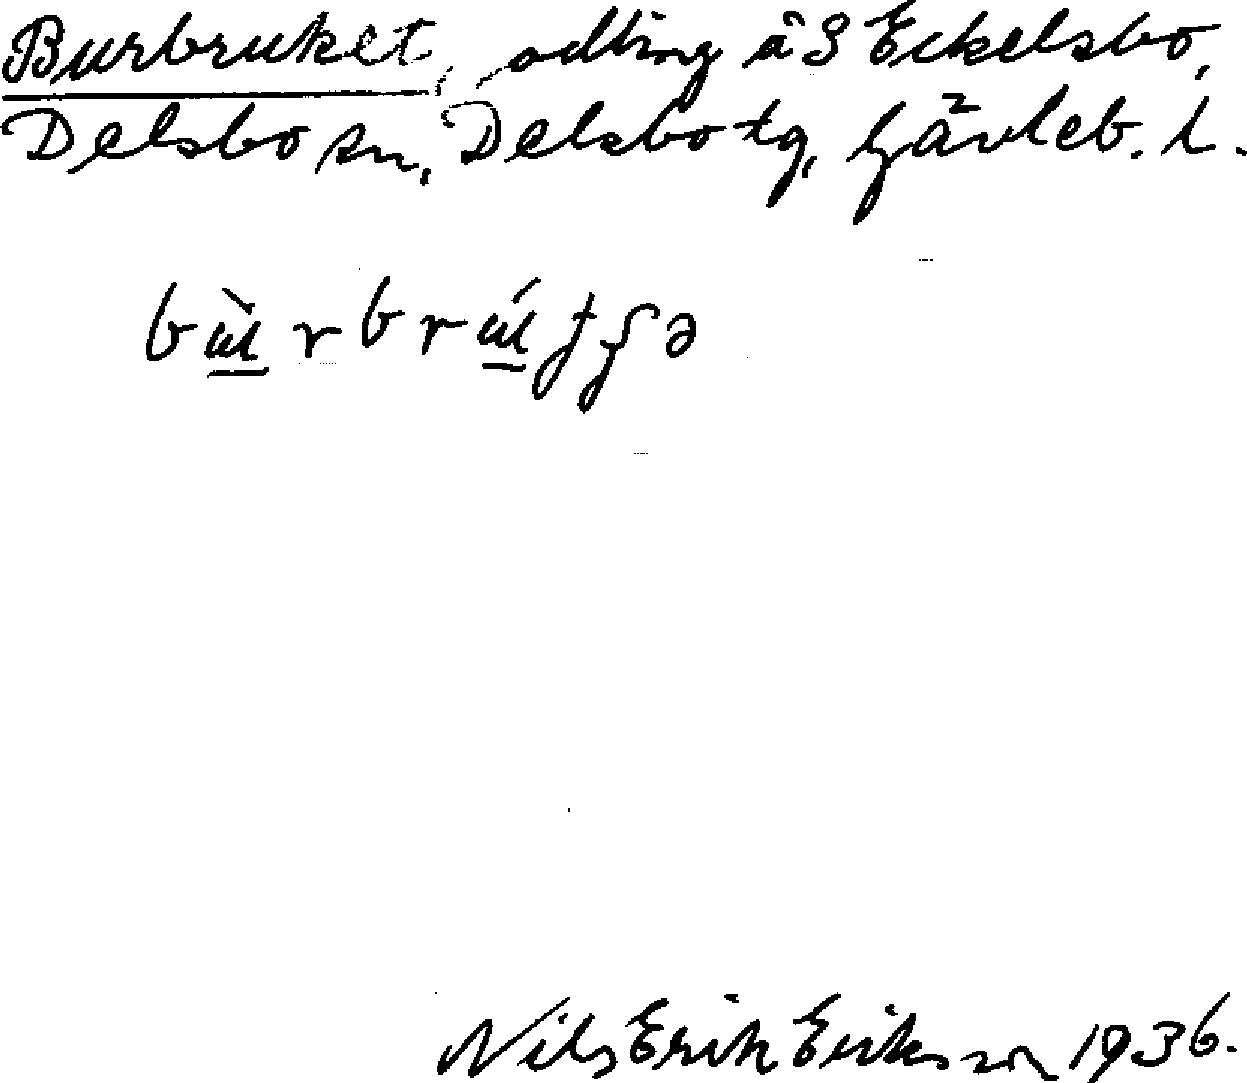 Burbruket, odling å S Eckelsbo,
Delsbo sn, Delsbo tg, Gävleb. l.
Nils Erik Eriksson 1936.